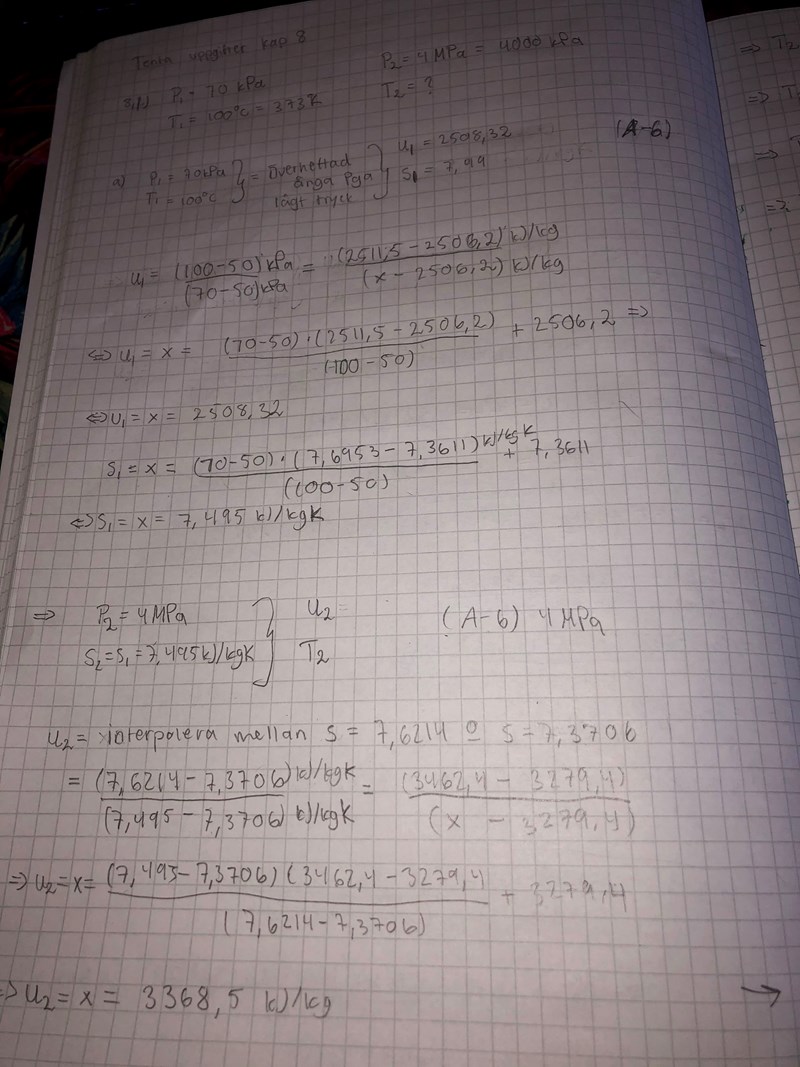 Tenta uppgifter kap 8
P₁ = 70 kPa
P₂ = 4 MPa = 4000 kPa
T₁ = 100°C = 373K
T₂ = ?
a) P₁ = 70kPa } = överhettad } u₁ = 2508,32 (A-6)
T₁ = 100°C ånga pga S₁ = 7,99
lågt tryck
u₁ = (100-50)kPa / (70-50)kPa = (2511,5 - 2506,2) kJ/kg / (x - 2506,2) kJ/kg
⇔ u₁ = x = (70-50)·(2511,5 - 2506,2) / (100-50) + 2506,2 ⇒
⇔ u₁ = x = 2508,32
S₁ = x = (70-50)·(7,6953 - 7,3611) kJ/kgK / (100-50) + 7,3611
⇔ S₁ = x = 7,495 kJ/kgK
⇒ P₂ = 4 MPa } u₂ (A-6) 4 MPa
S₂ = S₁ = 7,495 kJ/kgK T₂
u₂ = interpolera mellan s = 7,6214 o s = 7,3706
= (7,6214 - 7,3706) kJ/kgK / (7,495 - 7,3706) kJ/kgK = (3462,4 - 3279,4) / (x - 3279,4)
⇒ u₂ = x = (7,495 - 7,3706)(3462,4 - 3279,4 / (7,6214 - 7,3706) + 3279,4
⇒ u₂ = x = 3368,5 kJ/kg →
⇒ T₂
⇒ T
⇒
⇒